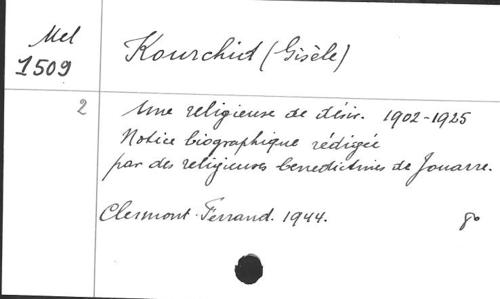 Mel
1509
Kourchid (Gisèle)
2
Une religieuse de désir. 1902-1925
Notice biographique rédigée
par des religieuses benedictines de Jouarre.
Clermont-Ferrand. 1944. 8º